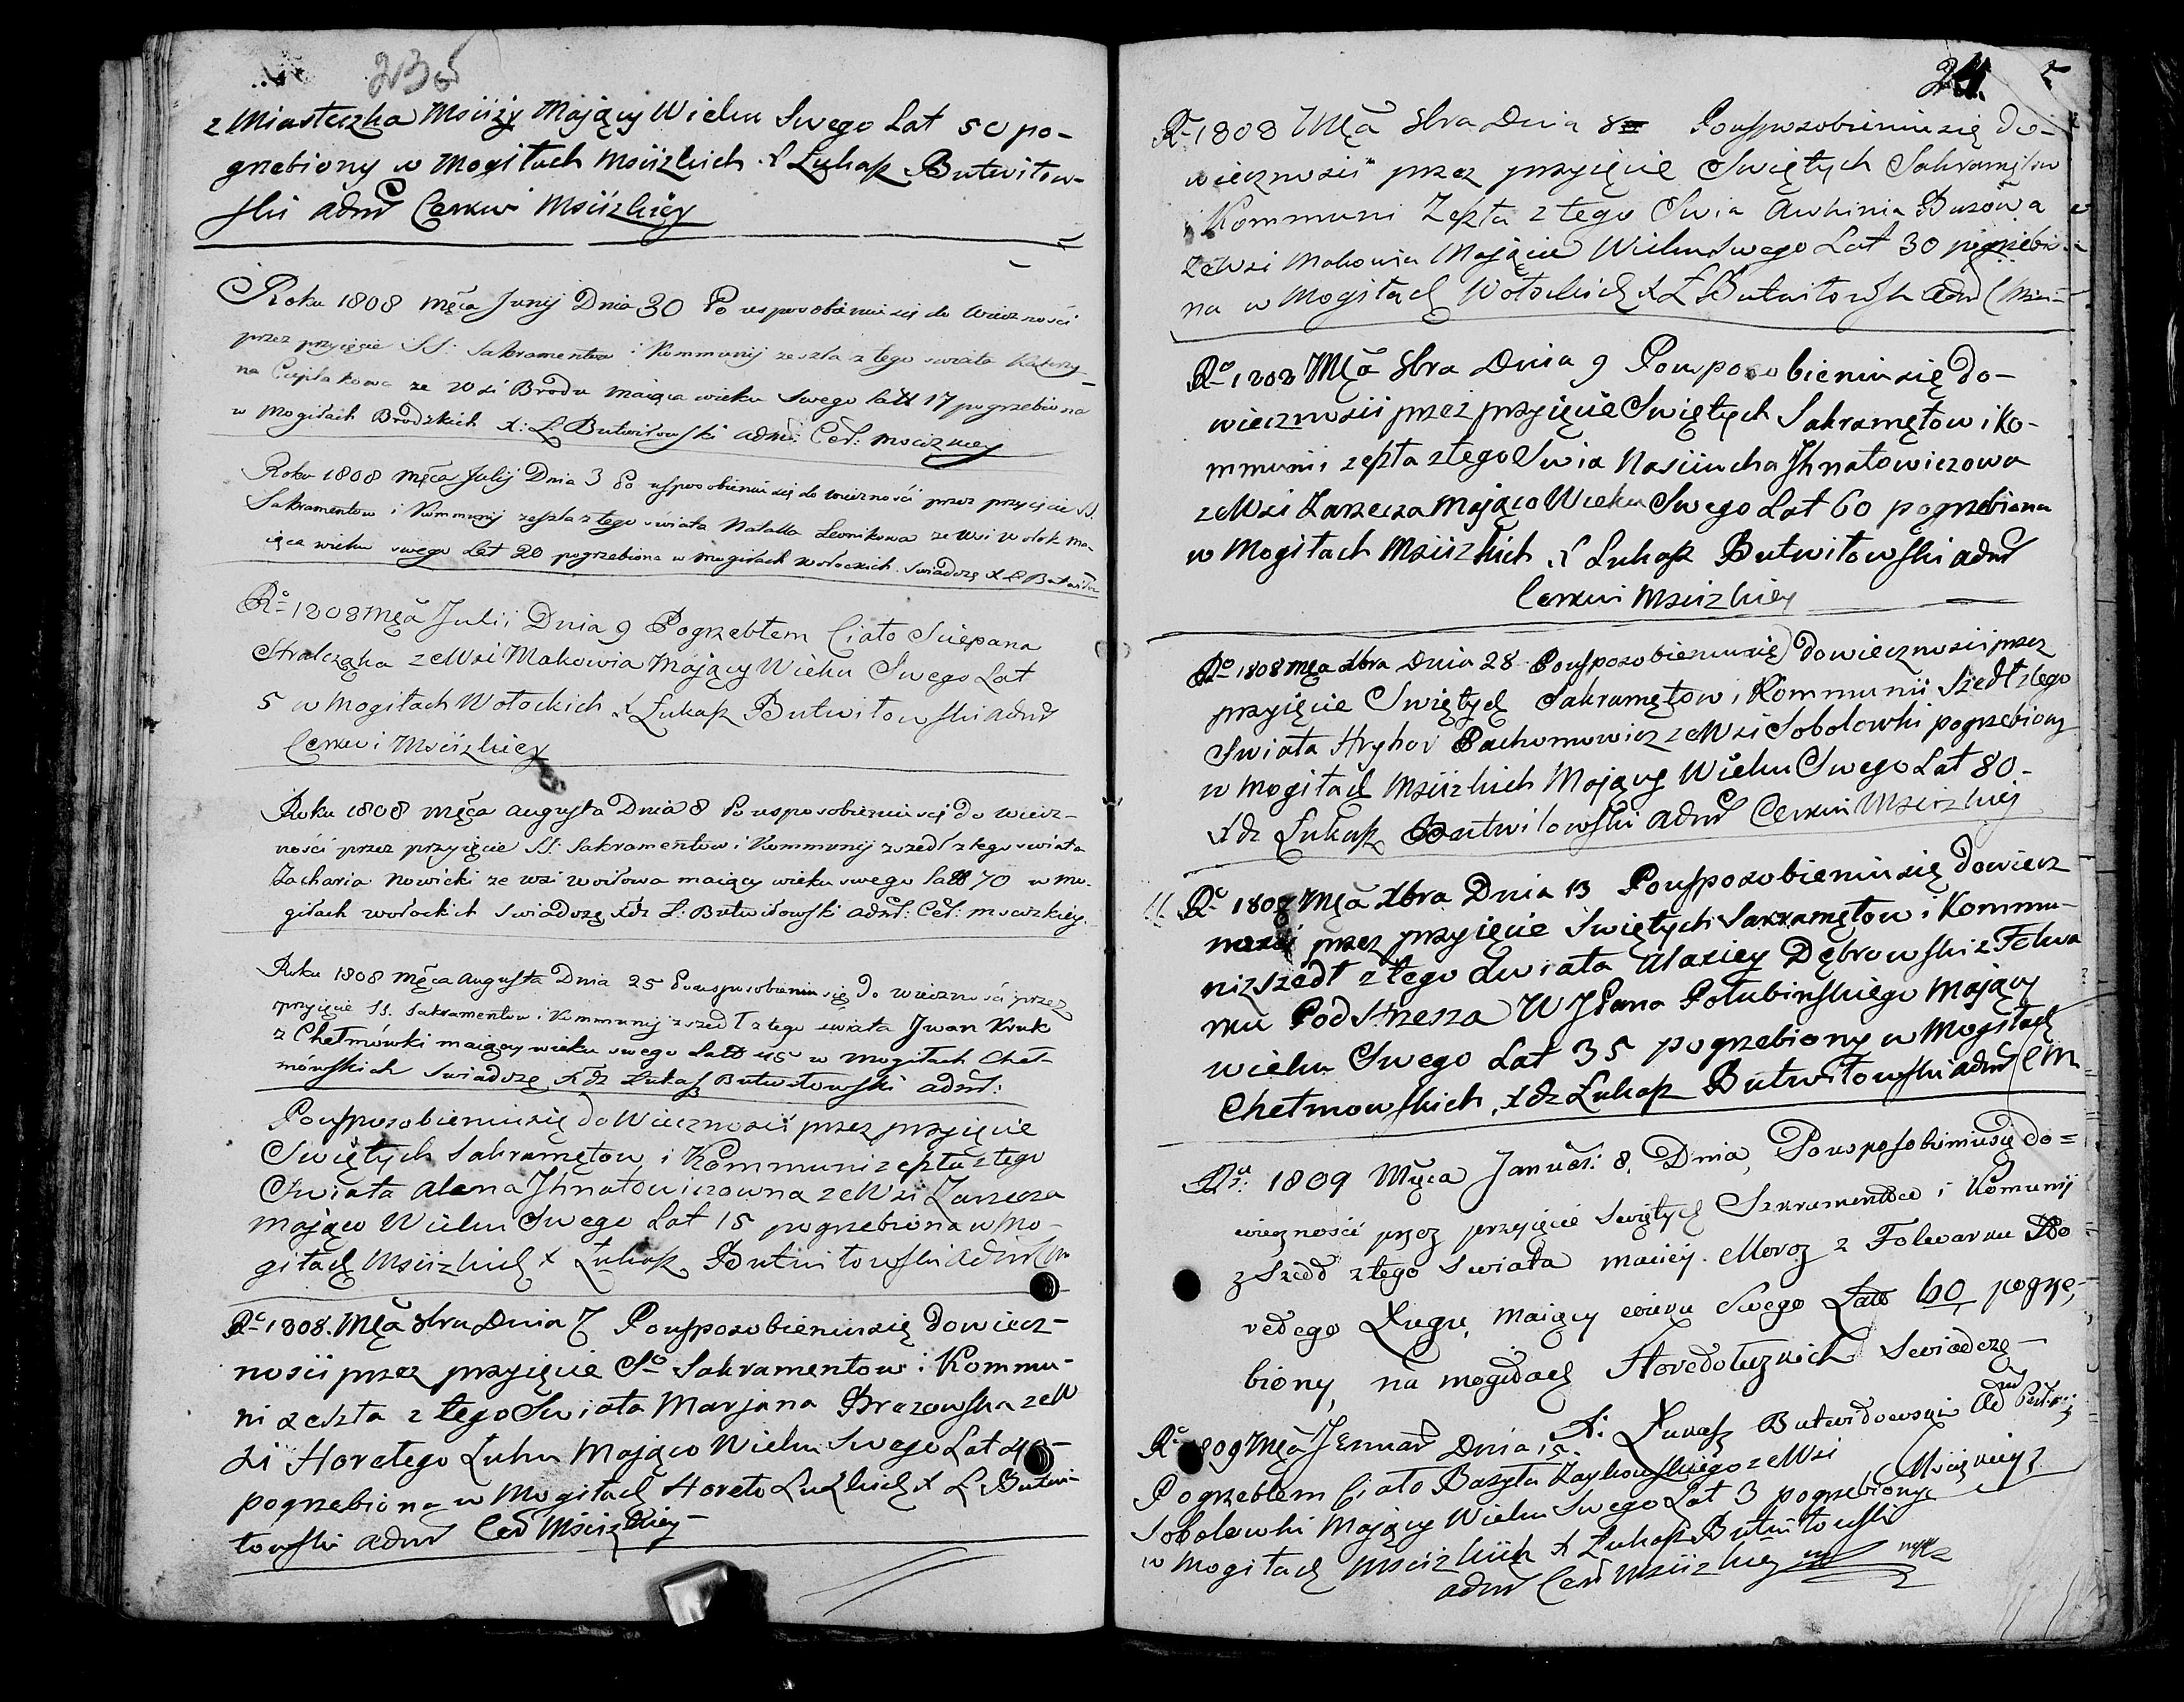 23
z Miasteczka Mścizy Mający Wieku Swego Lat 50 po-
grzebiony w Mogiłach Mścizkich X Łukasz Butwiłow-
ski admr Cerkwi Mścizkiey
Roku 1808 Męca Junij Dnia 30 Po usposobieniu się do wieczności
przez przyięcie SS: Sakramentow i Kommunij zeszła z tego swiata Katerzy-
na Cieplakowa ze Wsi Brodu maiąca wieku swego latt 17 pogrzebiona
w Mogiłach Brodzkich X: Ł Butwiłowski admr: Cer: Mscizkiey
Roku 1808 Męca Julij Dnia 3 Po usposobieniu się do wieczności przez przyięcie SS.
Sakramentow i Kommunij zeszła z tego świata Natalla Leonikowa ze Wsi Wołok ma-
iąca wieku swego Lat 20 pogrzebiona w mogiłach wołockich. Swiadczę X Ł Butwiłow
Ro 1808 Męa Julii Dnia 9 Pogrzebłem Ciało Sciepana
Stralcząka ze Wsi Makowia Mający Wieku Swego Lat
5 w Mogiłach Wołockich X Łukasz Butwiłowski admr
Cerkwi Mścizkiey
Roku 1808 Męca Augusta Dnia 8 Po usposobieniu się do wiecz-
ności przez przyięcie SS: Sakramentow i Kommunij zszedł z tego swiata
Zacharia Nowicki ze wsi Wołowa maiący wieku swego latt 70 w mo-
giłach wołockich Swiadczę Xdz Ł: Butwiłowski admr: Cer: mscizkiey.
Roku 1808 Męca Augusta Dnia 25 Po usposobieniu się do wieczności przez
przyięcie SS. Sakramentow i Kommunij zszedł z tego świata Jwan Kruk
z Chełmówki maiący wieku swego Latt 45 w Mogiłach Cheł-
mówskich Swiadczę Xdz Łukasz Butwiłowski admr:
Pousposobieniusię do Wiecznosii przez przyięcie
Swiętych Sakramętow i Kommuni zeszła z tego
Swiata Alena Jhnatowiczowna ze Wsi Zarzecza
Mająco Wieku Swego Lat 15 pogrzebiona w Mo-
giłach Mścizkich X Łukasz Butwiłowski Admr CM
Ro 1808. Męa 8bra Dnia 7 Pousposobieniusię Dowiecz-
nosii przez przyięcie So Sakramentow i Kommu-
ni zeszła z tego Swiata Marjana Brazowska ze W
si Horełego Łuhu Mająco Wieku Swego Lat 40
pogrzebiona w Mogiłach Horeło Łuzkich X Ł Butwi-
łowski admr Cer Mścizkiey
24
Ro 1808 Męa 8bra Dnia 8 Pousposobieniusię do-
wiecznosii przez przyięcie Swiętych Sakramętow
i Kommuni Zeszła z tego Swia Awhinia Busowa
ze Wsi Makowia Mające Wieku Swego Lat 30 pogrzebio-
na w Mogiłach Wołockich X Ł Butwiłowski Admr C Mści-
Ro 1808 Męa 8bra Dnia 9 Pousposobieniusię do-
wiecznosii przez przyięcie Swiętych Sakramętow i Ko-
mmunii zeszła z tego Swia Nasciucha Jhnatowiczowa
ze Wsi Zarzecza Mająco Wieku Swego Lat 60 pogrzebiona
w Mogiłach Mścizkich X Łukasz Butwiłowski admr
Cerkwi Mścizkiey
Ro 1808 Męa Xbra Dnia 28 Pousposobieniusię dowiecznosii przez
przyięcie Swiętych Sakramętow i Kommunii Szedł z tego
Swiata Hryhor Pachomowicz ze Wsi Sobolewki pogrzebiony
w Mogiłach Mścizkich Mający Wieku Swego Lat 80-
Xdz Łukasz Butwiłowski admr Cerkwi Mścizkiey
Ro 1808 Męa Xbra Dnia 13 Pousposobieniusię Dowiecz
nosii przez przyięcie Swiętych Sakramętow i Kommu-
ni zszedł z tego Swiata Alaxiey Dębrowski z Folwa
rku Podstrzesza W JPana Połubinskiego Mający
wieku Swego Lat 35 pogrzebiony w Mogiłach
Chełmowskich, Xdz Łukasz Butwiłowski admr CM
Ru: 1809 Męca Januar: 8. Dnia, Pousposobieniusię do=
wieczności przez przyięcie Swiętych Sakramentow i Komunij
z Szedł z tego Swiata Maciey. Moroz z Folwarku Ho
rełego Ługu, Maiący wieku Swego Latt 60, pogrze,-
biony, na mogiłach Horełołuzkich Swiadczę-
X: Łukasz Butwiłowski Ad Cerk:
Mścizkiey
Ro 1809 Męa Jenuar Dnia 15.
Pogrzebłem Ciało Bazyla Zaykowskiego ze Wsi
Sobolewki Mający Wieku Swego Lat 3 pogrzebiony
w Mogiłach Mścizkich X Łukasz Butwiłowski
admr Cer Mścizkiey